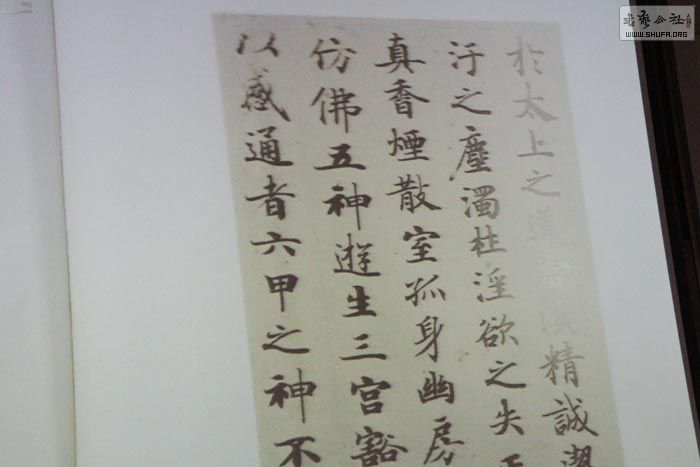 於太上之道精誠潔
汙之塵濁杜淫欲之失
真香煙散室孤身幽房
仿佛五神遊生三宮豁
以感通者六甲之神不
书艺公社
WWW.SHUFA.ORG